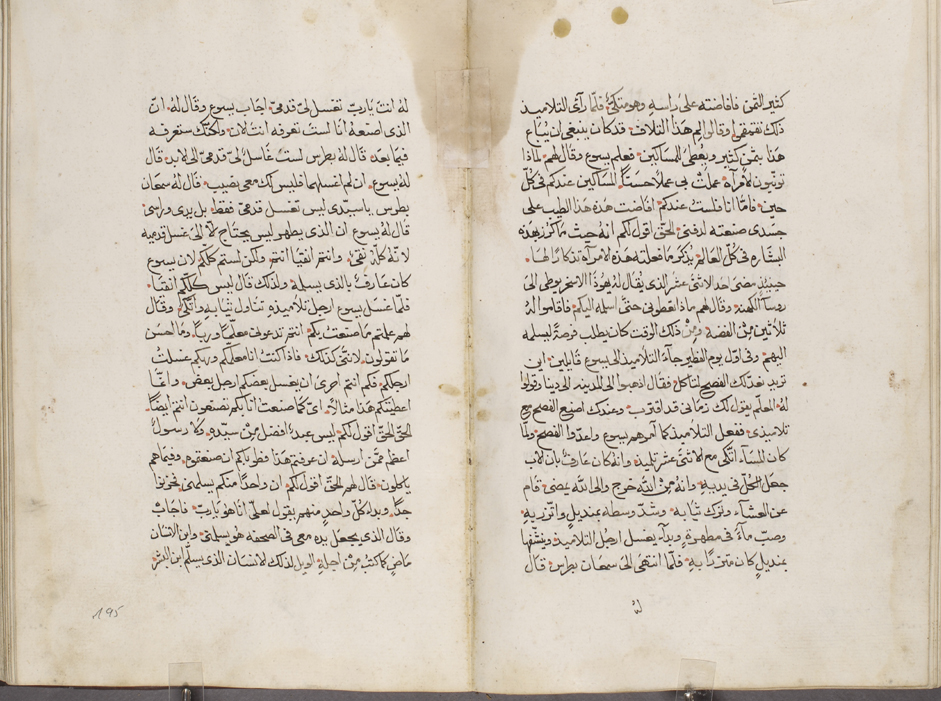 كثير الثمن فافاضته على راسه وهو متكئ فلما رآى التلاميذ
ذلك تقمقموا وقالوا لم هذا التلاف فقد كان ينبغي ان يباع
هذا بثمن كثير ويعطى للمساكين فعلم يسوع وقال لهم لماذا
توذون لامرآة عملت بي عملاً حسناً المساكين عندكم في كل
حين فامّا انا فلست عندكم افاضت هذه هذا الطيب على
جسدي صنعته لدفني الحق اقول لكم انه حيث ما كرز بهذه
البشاره في كل العالم يذكر ما فعلته هذه لامرآة تذكاراً لها
حينيذٍ مضى احد الاثنى عشر الذي يقال له يهوذا الاسخريوطى الى
روسآ الكهنة وقال لهم ماذا تعطوني حتى اسلمه اليكم فاقاموا له
ثلاثين من الفضة ومن ذلك الوقت كان يطلب فرصة ليسلمه
اليهم وفي اول يوم الفطير جآء التلاميذ الى يسوع قايلين اين
تريد نعد لك الفصح لتاكل فقال اذهبوا الى المدينه الى وقولوا
له المعلم يقول لك زماني قد اقترب وعندك اصنع الفصح مع
تلاميذي ففعل التلاميذ كما آمرهم يسوع واعدوا الفصح ولما
كان المسآء اتكى مع الاثنى عشر تلميذه وانه كان عارف بان الاب
جعل الكل في يديه وانه من الله خرج والى الله يمضى قام
عن العشآء وترك ثيابه وشد وسطه بمنديل واتزر به
وصب مآء في مطهرة وبدآء يغسل ارجل التلاميذ وينشفها
بمنديل كان متزراً به فلما انتهى الى سمعان بطرس قال
له
له انت يارب تغسل لي قدمي اجاب يسوع وقال له انّ
الذي اصنعه انا لست تعرفه انت الان ولكنك ستعرفه
فيما بعد قال له بطرس لست غاسل لي قدمي الى لابد قال
له يسوع ان لم اغسلهما فليس لك معي نصيب قال له سمعان
بطرس ياسيدي ليس تغسل قدمي فقط بل يدي وراسي
قال له يسوع ان الذي يطهر ليس يحتاج الا الى غسل قدميه
لانه كله نقي وانتم انقيآ انتم ولكن لستم كلكم لان يسوع
كان عارف بالذي يسلمه ولذلك قال ليس كلكم انقيا
فلما غسل يسوع ارجل تلاميذه تناول ثيابه واتكى وقال
لهم علمتم ما صنعت بكم انتم تدعوني معلماً ورباً وما احسن
ما تقولون لانني كذلك فاذا كنت انا معلمكم وربكم غسلت
ارجلكم فكم انتم احرى ان يغسل بعضكم ارجل بعض وانما
اعطيتكم هذا مثالاً اى كما صنعت انا بكم تصنعون انتم ايضاً
الحق الحق اقول لكم ليس عبد افضل من سيده ولا رسول
اعظم ممن ارسله ان عرفتم هذا فطوباكم ان صنعتموه وفيما هم
ياكلون قال لهم الحق اقول لكم ان واحداً منكم يسلمني فحزنوا
جداً وبداء كل واحدٍ منهم يقول لعلي انا هو يارب فاجاب
وقال الذي يجعل يده معي في الصحفة هو يسلمني وابن الانسان
ماض كما كتب من اجله الويل لذلك الانسان الذي يسلم ابن البشر
195